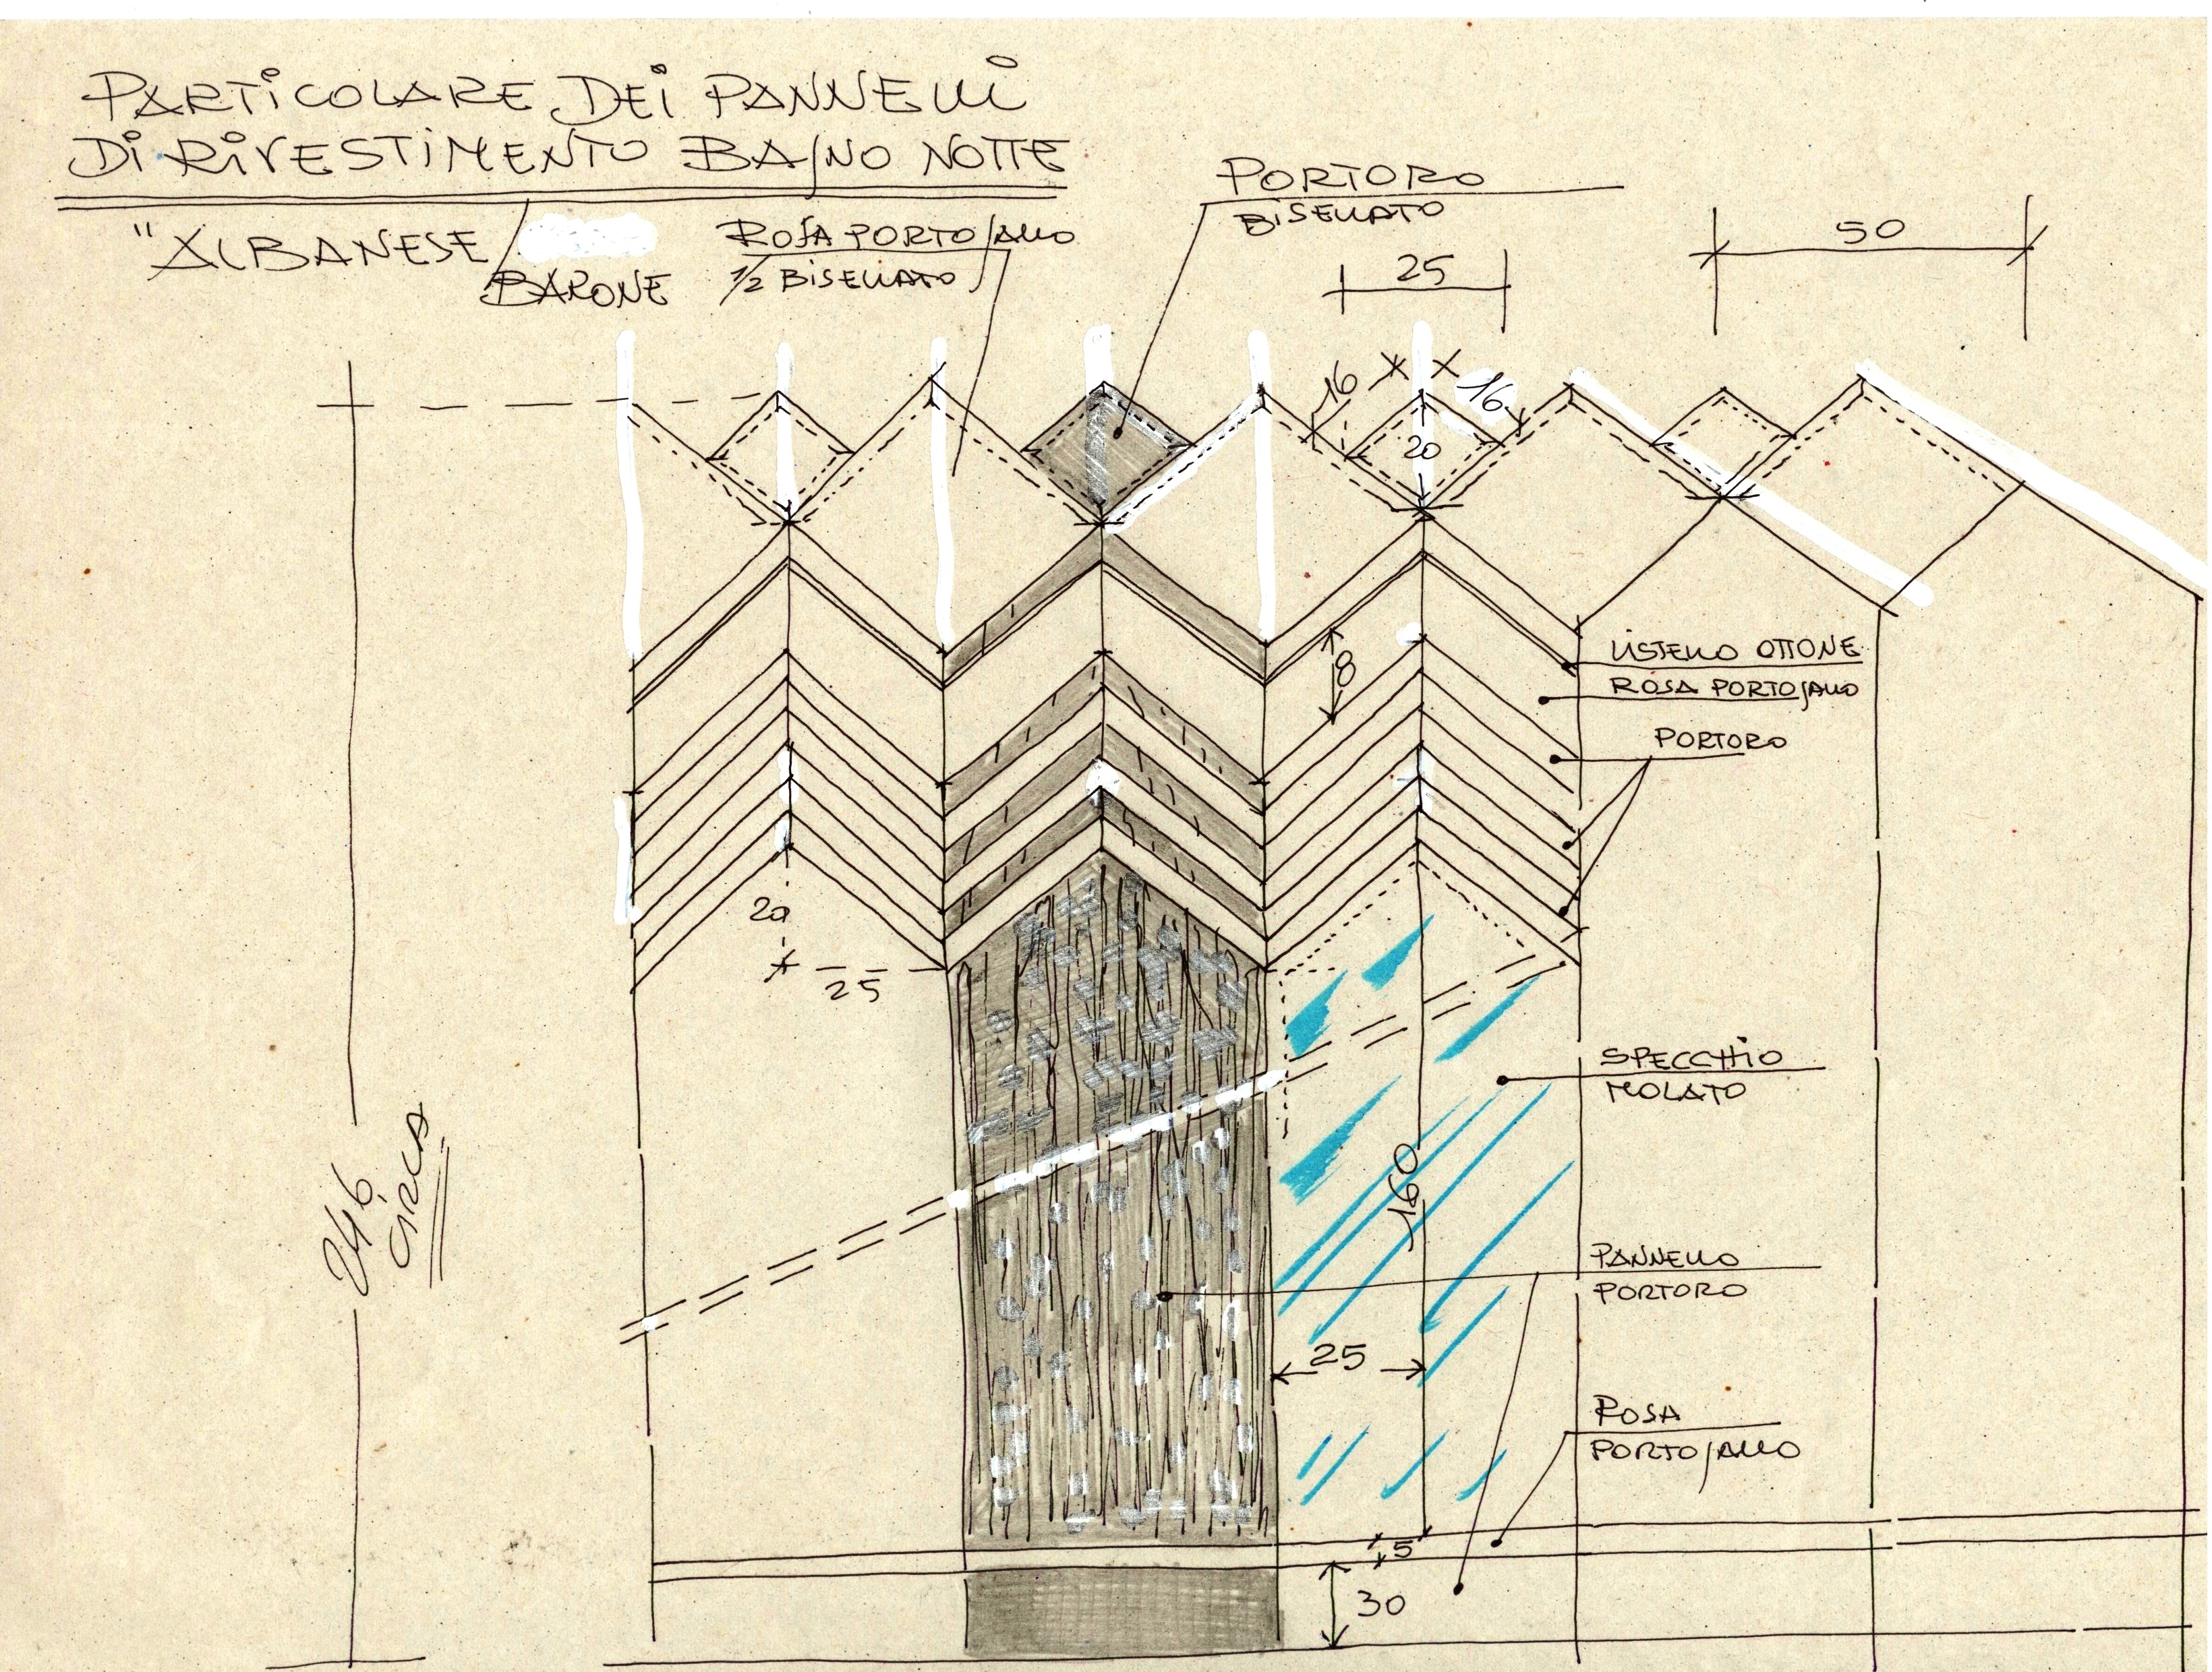 PARTICOLARE DEI PANNELLI
DI RIVESTIMENTO BAGNO NOTTE
"ALBANESE/
BARONE
ROSA PORTOGALLO
1/2 BISELLATO
PORTORO
BISELLATO
50
25
16
16
20
LISTELLO OTTONE
8
ROSA PORTOGALLO
PORTORO
20
25
SPECCHIO
MOLATO
246
CIRCA
160
PANNELLO
PORTORO
25
ROSA
PORTOGALLO
5
30